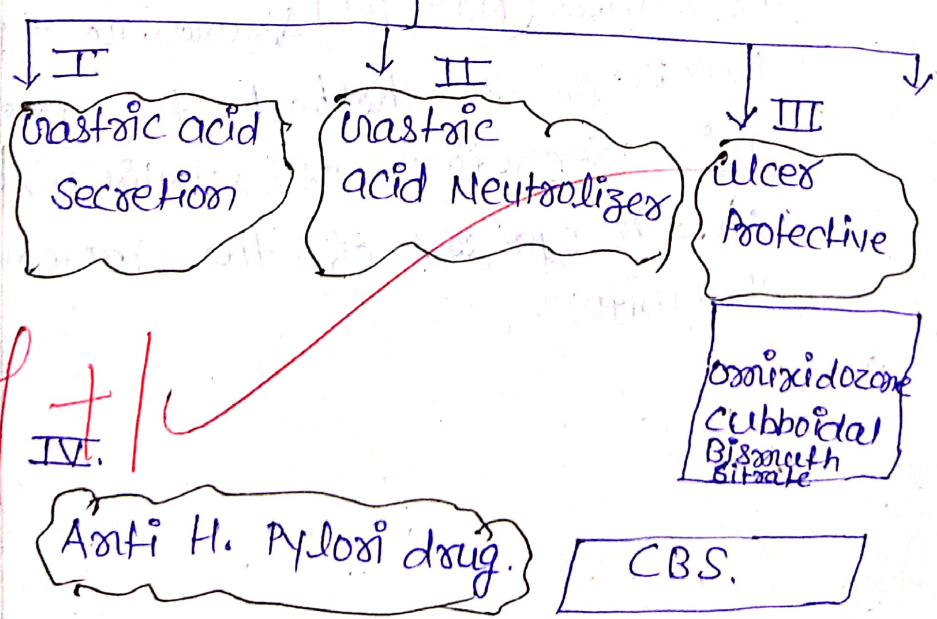 I
Gastric acid
secretion
II
Gastric
acid Neutrolizer
III
ulcer
Protective
omixidozone
cubboidal
Bismuth
Citrate
+1
IV.
Anti H. Pylori drug.
CBS.